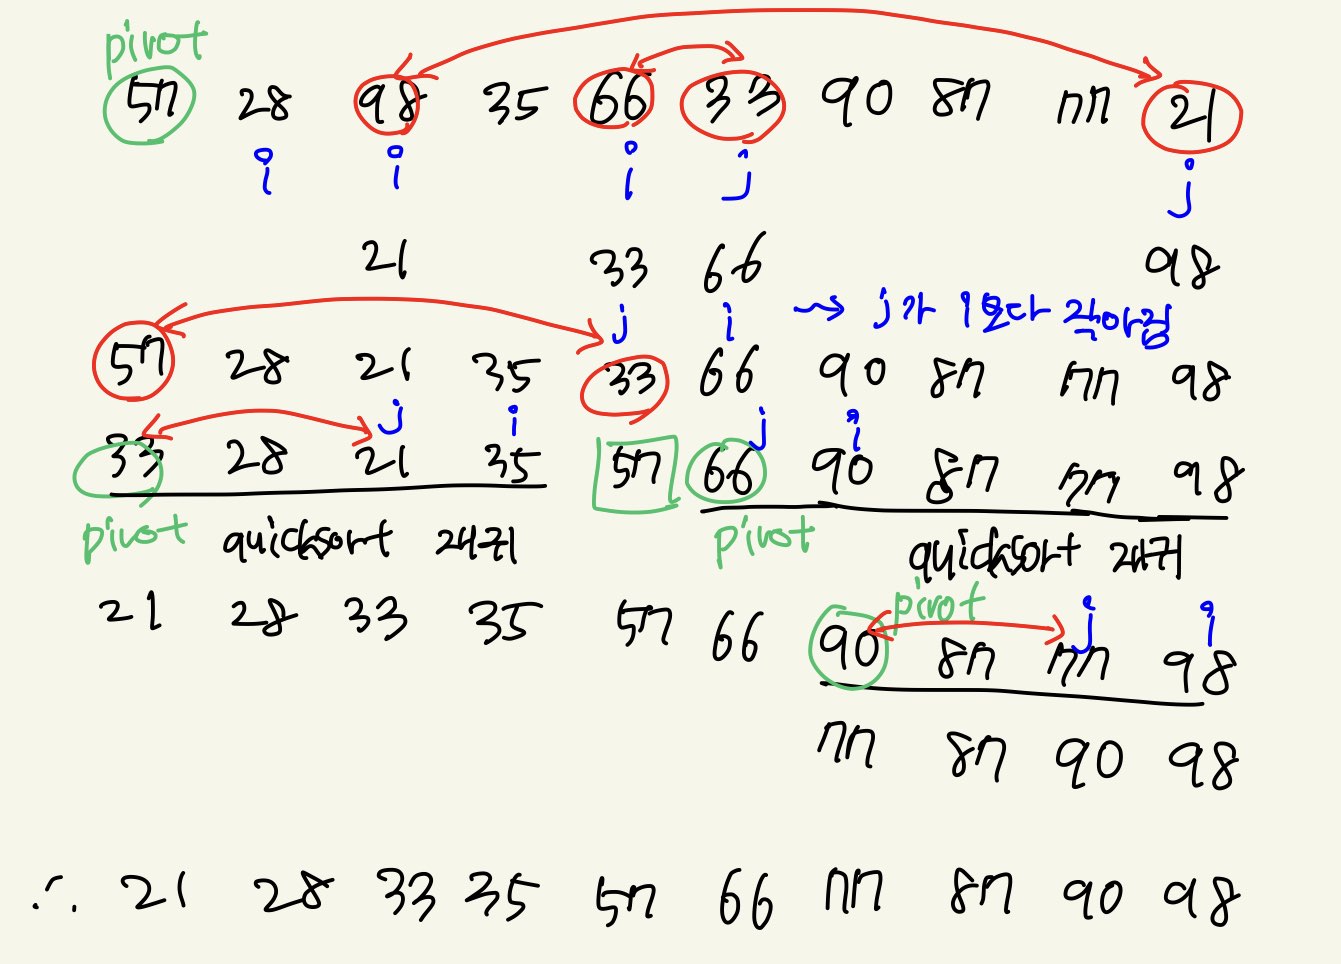 pivot
57 28 98 35 66 33 90 87 77 21
i i i j j
21 33 66 98
j i → j가 i보다 작아짐
57 28 21 35 33 66 90 87 77 98
j i j i
33 28 21 35 57 66 90 87 77 98
pivot quicksort pivot quicksort
pivot j i
21 28 33 35 57 66 90 87 77 98
77 87 90 98
∴ 21 28 33 35 57 66 77 87 90 98